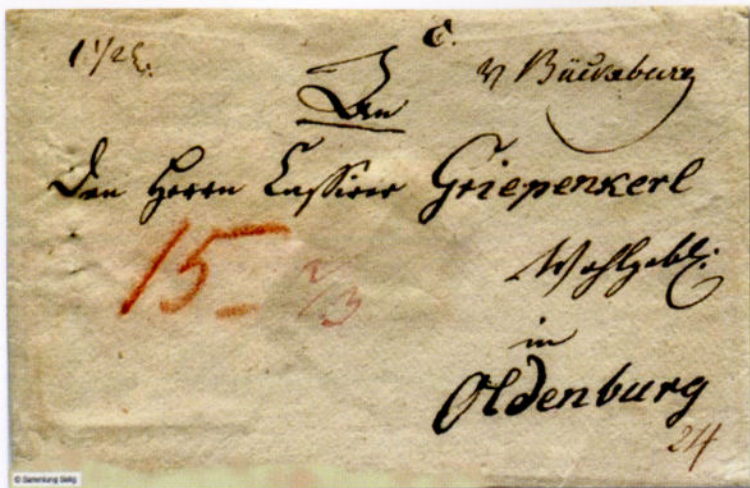 1 1/2 L.
C.
v Bückeburg
An
Den Herrn Cassirer Griepenkerl
15
2/3
Wohlgebl:
in
Oldenburg
24
© Sammlung Selig